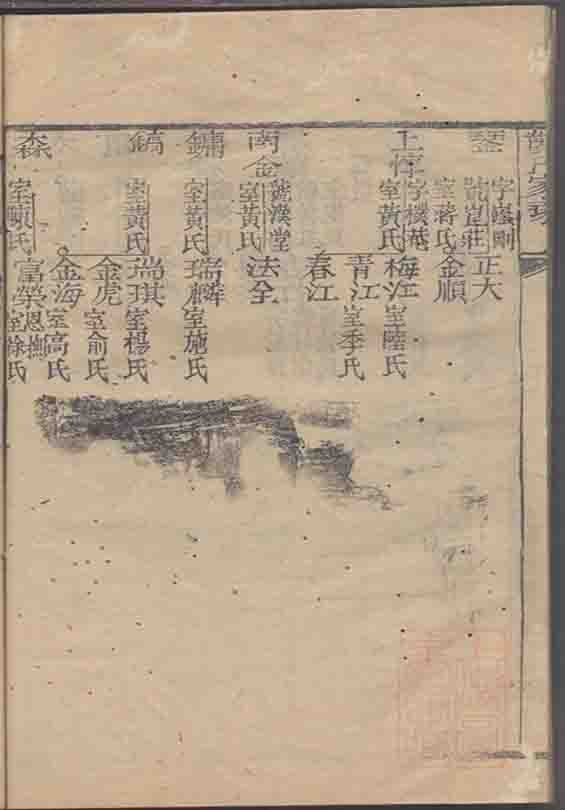 氏家
琴
字 剛
號 莊
室蔣氏
正大
金順
上惇
字樸菴
室黃氏
梅江
室陸氏
青江
室季氏
春江
南金
號漢堂
室黃氏
法全
鏞
室黃氏
瑞麟
室施氏
鎬
室黃氏
瑞琪
室楊氏
金虎
室俞氏
金海
室高氏
森
室顧氏
富榮
恩撫
室徐氏